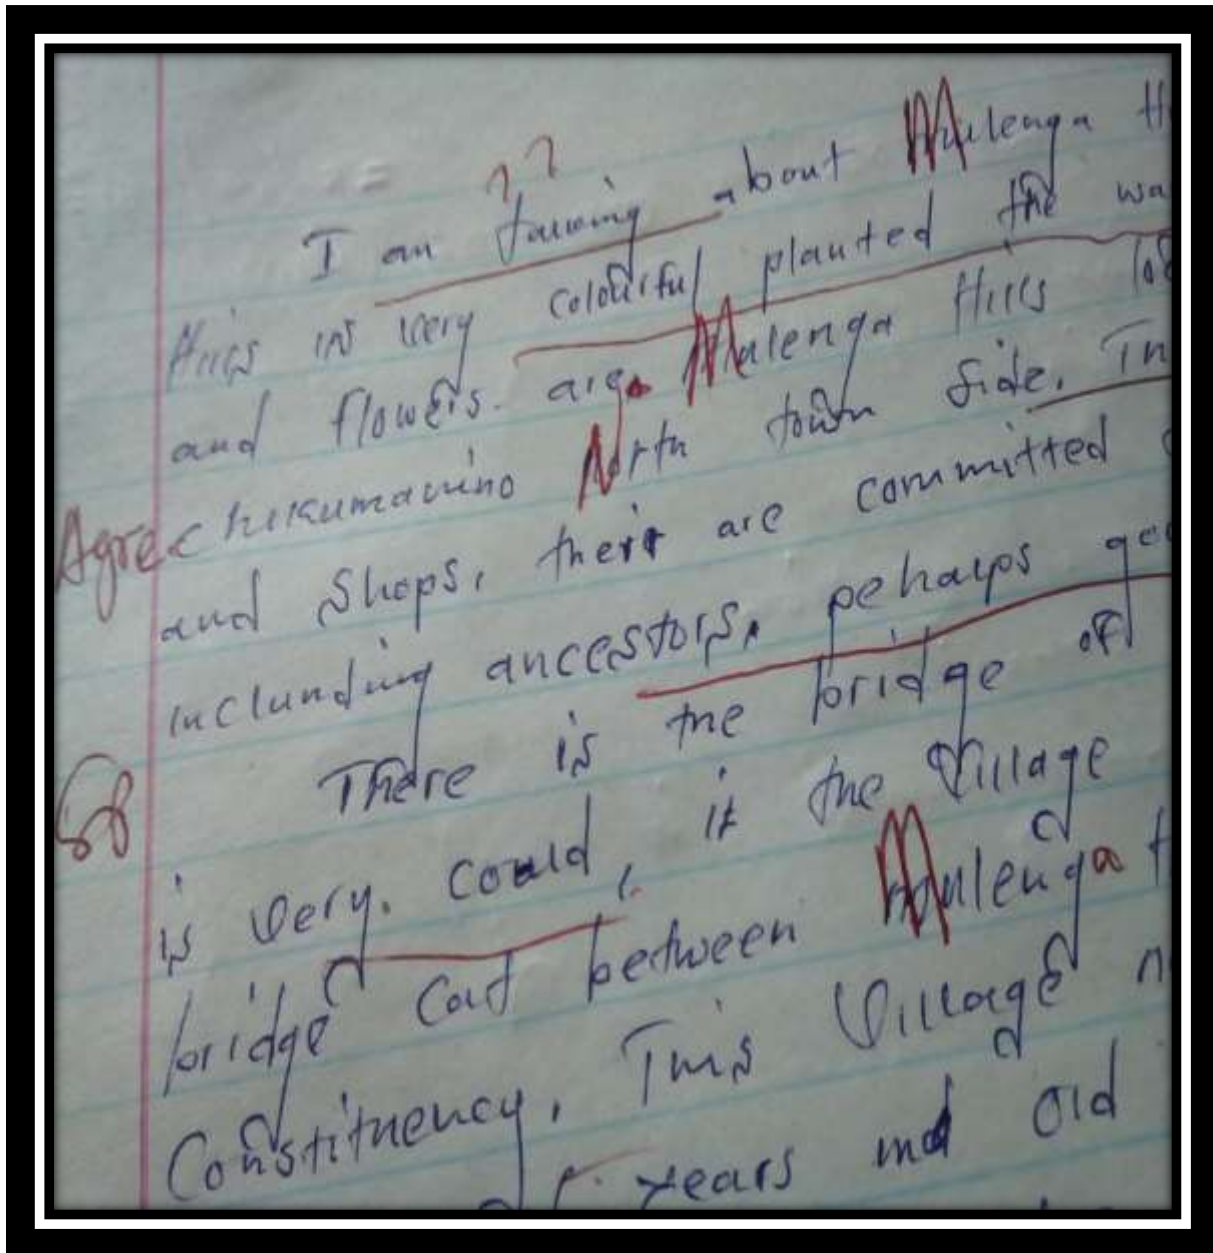 ? ?
I am about Mulenga H
Hills is very colourful planted the wa
and flowers. are Malenga Hills
Agre North town side. In
and Shops, their are committed
inclunding ancestors, pehaps
There is the bridge of
Sp
is very. could, it the Village
bridge Cat between Mulenga H
Constituency, This Village
years old